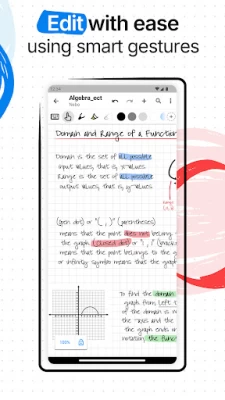 Edit with ease
using smart gestures
Algebra_ect
Notes
Domain and Range of a Function
Domain is the set of all possible
input values, that is, x-values.
Range is the set of all possible
output values, that is, y-values.
(open dot) or "( , )" (parentheses)
means that the point does not belong
the graph. (closed dot) or
means that the point belongs to the g
or infinity symbol means that the grap
To find the domain
graph from left t
of the domain is
the -axis and the
the graph ends
notation. the func